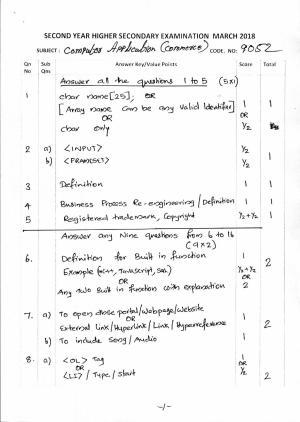 SECOND YEAR HIGHER SECONDARY EXAMINATION MARCH 2018
SUBJECT : Computer Application (Commerce) CODE. NO: 9052
Qn No Sub Qns Answer Key/Value Points Score Total
Answer all the questions 1 to 5 (5x1)
1 char name[25]; OR
[Array name can be any valid Identifier] 1 1
OR
char only ½
2 a) <INPUT> ½
b) <FRAMESET> ½ 1
3 Definition 1 1
4 Business Process Re-engineering / Definition 1 1
5 Registered trademark, Copyright ½+½ 1
Answer any Nine questions from 6 to 16
(9x2)
6. Definition for Built in function 1 2
Example (C++, JavaScript, SQL) ½+½
OR OR
Any two Built in function with explanation 2
7. a) To open those portal/webpage/website 1
OR
External link/Hyperlink/Link/Hyperreference 2
b) To include Song / Audio 1
8. a) <OL> Tag 1
OR OR
<LI> / Type / Start ½ 2
-/-